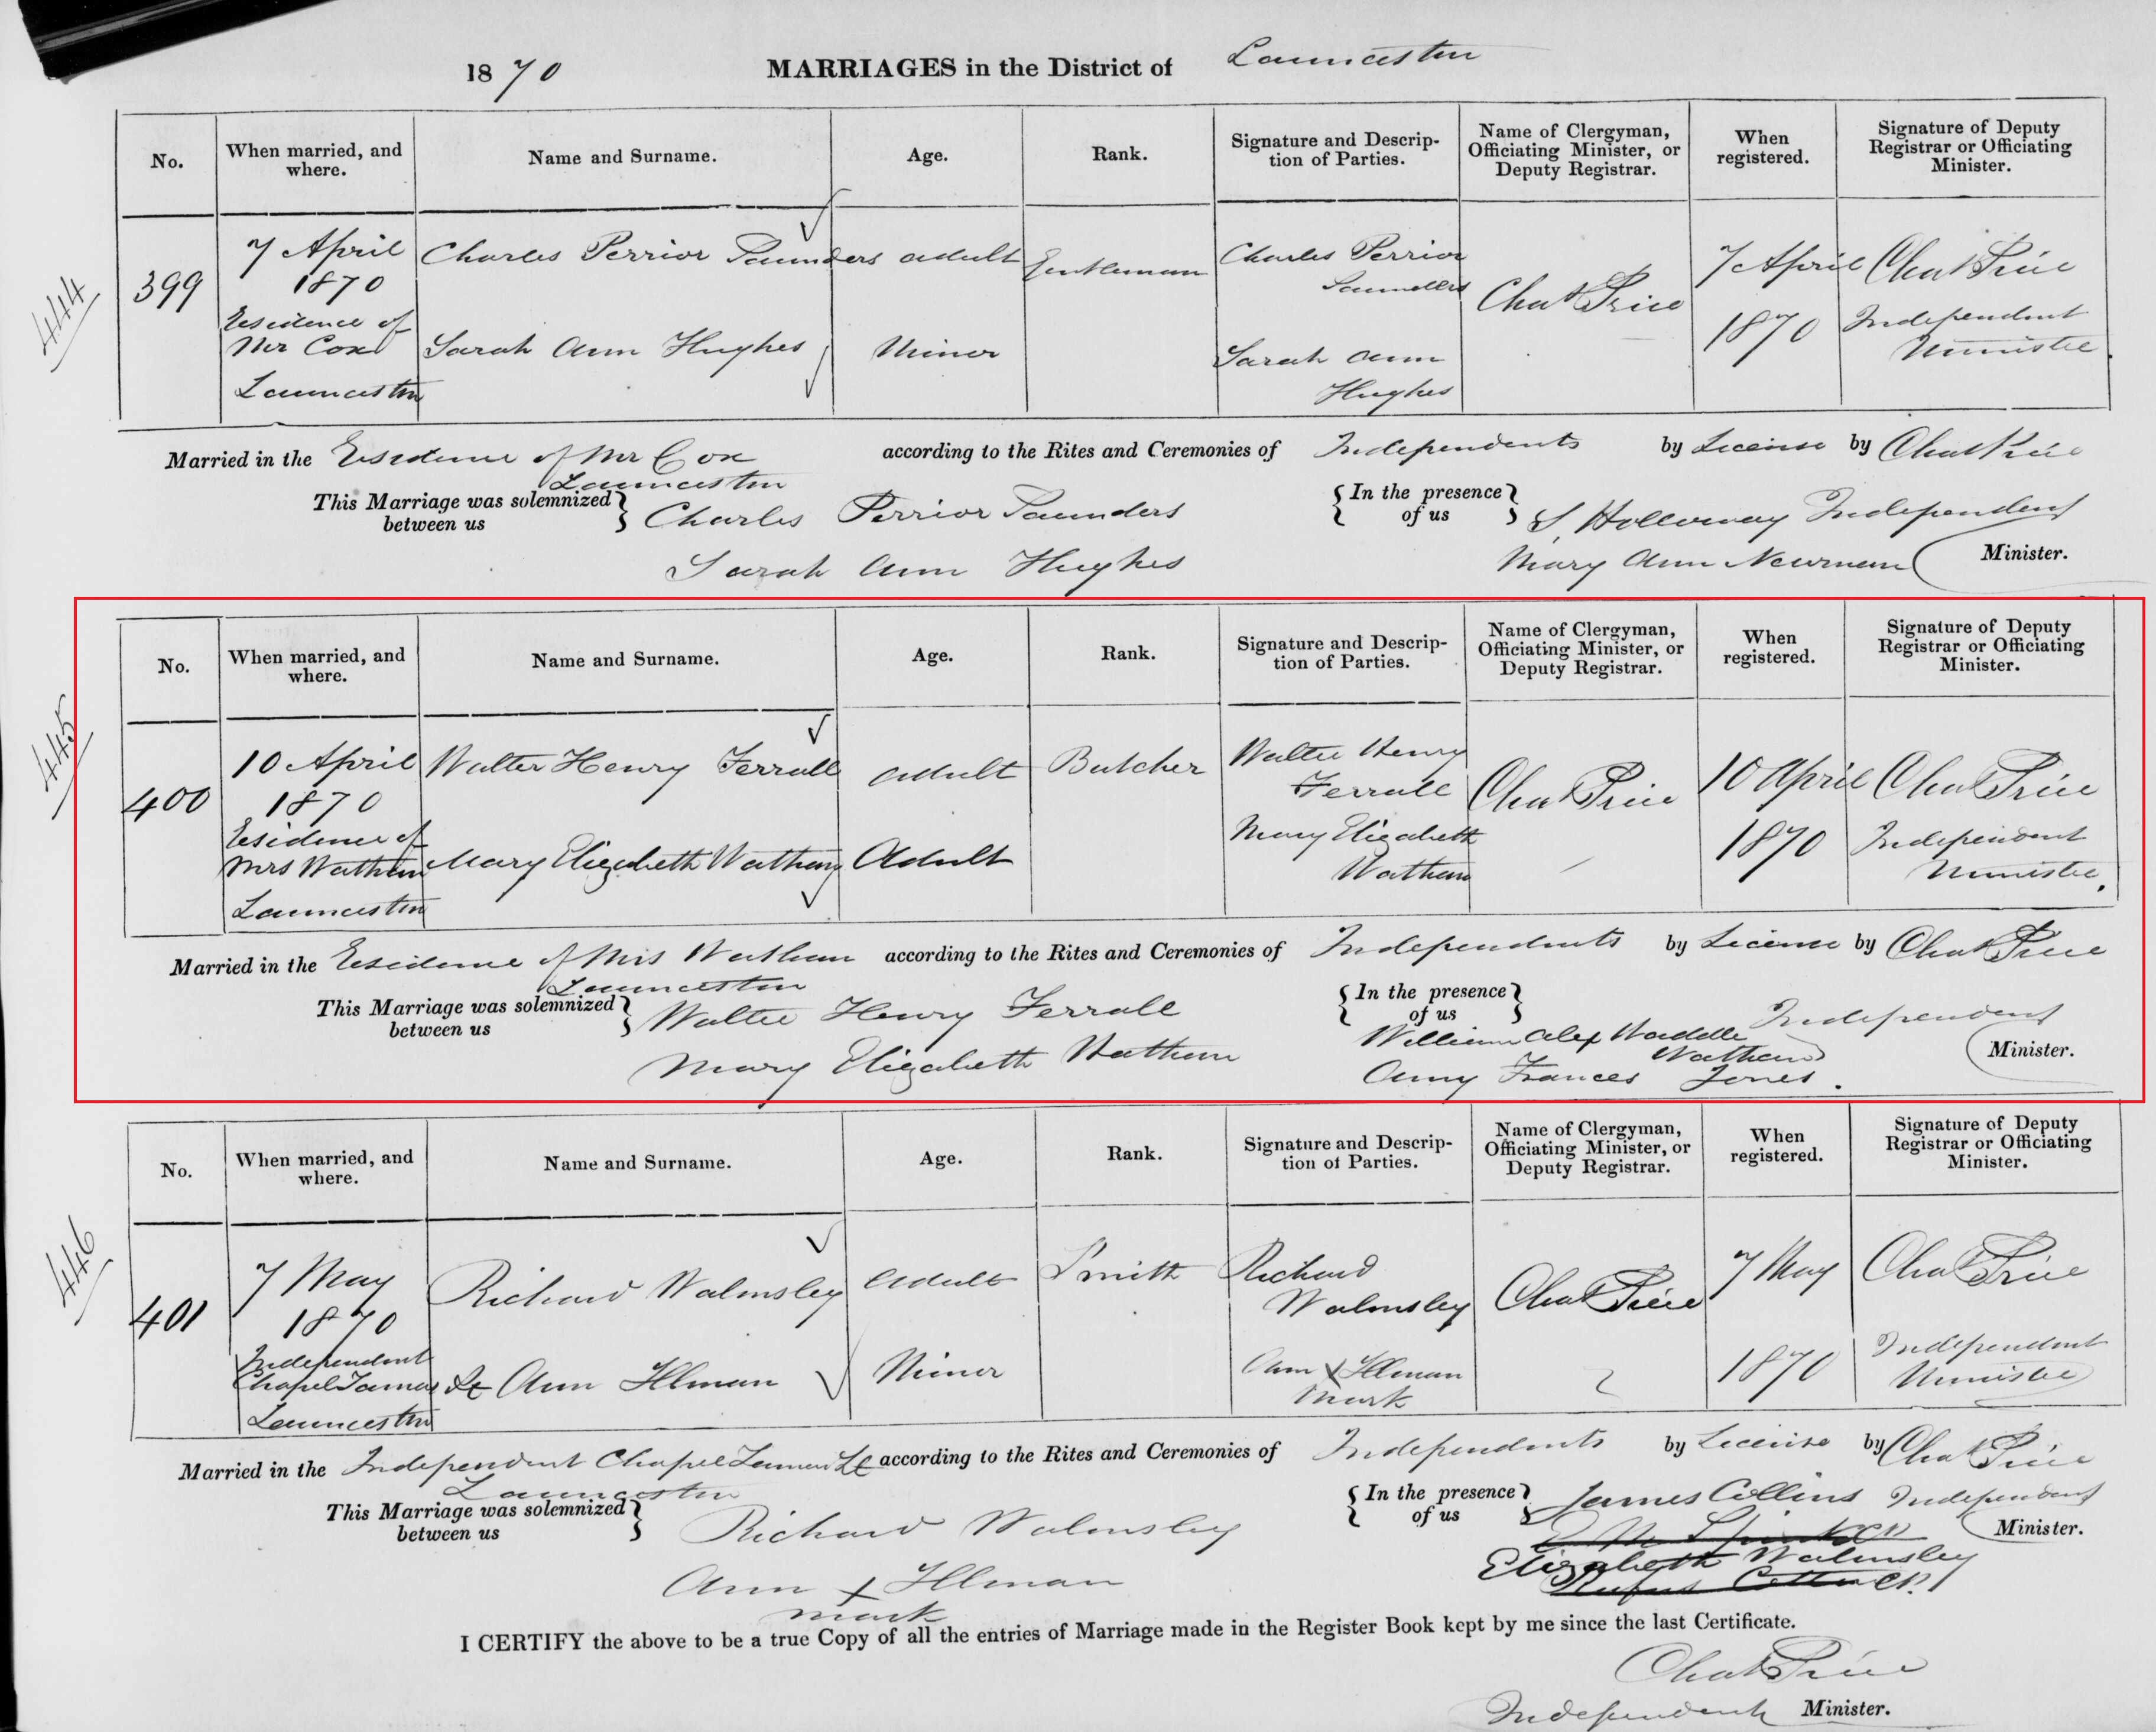 1870 MARRIAGES in the District of Launceston
No. When married, and where. Name and Surname. Age. Rank. Signature and Description of Parties. Name of Clergyman, Officiating Minister, or Deputy Registrar. When registered. Signature of Deputy Registrar or Officiating Minister.
444
399
7 April
1870
Residence of
Mr Cox
Launceston
Charles Perrior Saunders
Sarah Ann Hughes
adult
Minor
Gentleman
Charles Perrior
Saunders
Sarah Ann
Hughes
Chas Price
7 April
1870
Chas Price
Independent
Minister
Married in the Residence of Mr Cox according to the Rites and Ceremonies of Independents by License by Chas Price
Launceston
This Marriage was solemnized between us } Charles Perrior Saunders { In the presence of us } S. Holloway Independent
Sarah Ann Hughes Mary Ann Newman Minister.
No. When married, and where. Name and Surname. Age. Rank. Signature and Description of Parties. Name of Clergyman, Officiating Minister, or Deputy Registrar. When registered. Signature of Deputy Registrar or Officiating Minister.
445
400
10 April
1870
Residence of
Mrs Watham
Launceston
Walter Henry Ferrall
Mary Elizabeth Watham
adult
Adult
Butcher
Walter Henry
Ferrall
Mary Elizabeth
Watham
Chas Price
10 April
1870
Chas Price
Independent
Minister
Married in the Residence of Mrs Watham according to the Rites and Ceremonies of Independents by License by Chas Price
Launceston
This Marriage was solemnized between us } Walter Henry Ferrall { In the presence of us } Independent
William Alex Waddle
Watham
Mary Elizabeth Watham Amy Frances Jones. Minister.
No. When married, and where. Name and Surname. Age. Rank. Signature and Description of Parties. Name of Clergyman, Officiating Minister, or Deputy Registrar. When registered. Signature of Deputy Registrar or Officiating Minister.
446
401
7 May
1870
Independent
Chapel Tamar St
Launceston
Richard Walmsley
Ann Illman
adult
Minor
Smith
Richard
Walmsley
Ann X Illman
mark
Chas Price
7 May
1870
Chas Price
Independent
Minister
Married in the Independent Chapel Tamar St according to the Rites and Ceremonies of Independents by License by Chas Price
Launceston
This Marriage was solemnized between us } Richard Walmsley { In the presence of us } James Collins Independent
Elizabeth Walmsley Minister.
Ann X Illman
mark
I CERTIFY the above to be a true Copy of all the entries of Marriage made in the Register Book kept by me since the last Certificate.
Chas Price
Independent Minister.